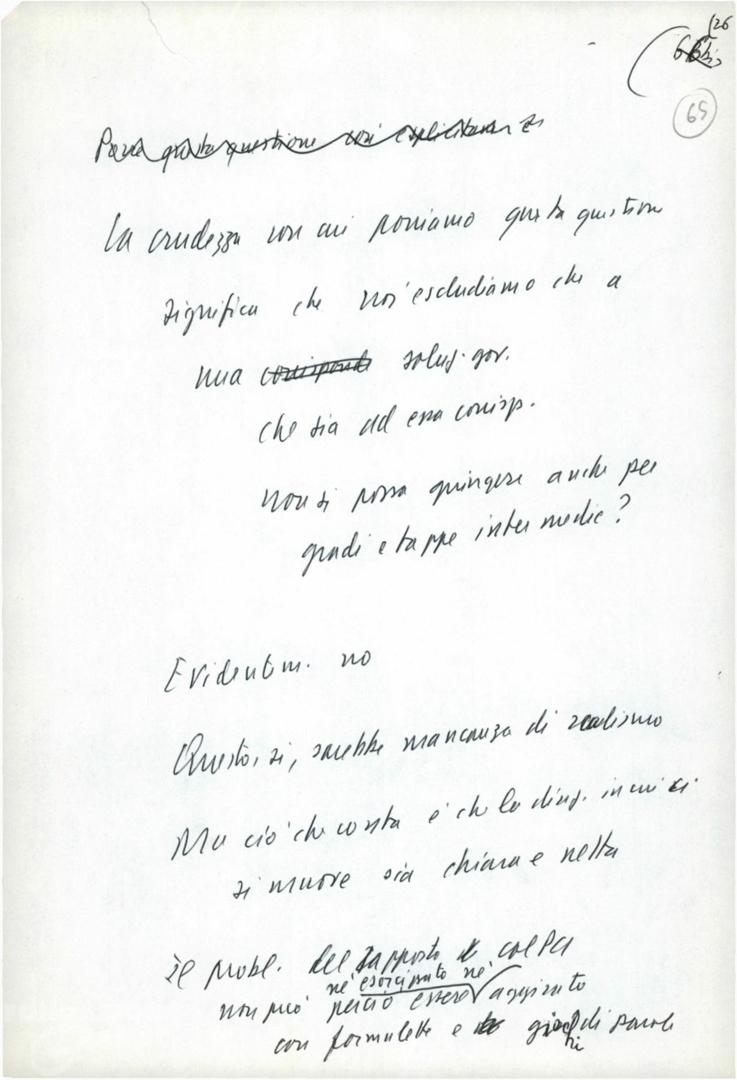 (26
65
Posta questa questione così esplicitam.
La crudezza con cui poniamo questa questione
significa che noi escludiamo che a
una corrisponde soluz. gov.
che sia ad essa corrisp.
non si possa giungere anche per
gradi e tappe intermedie?
Evidentem. no
Questo, sì, sarebbe mancanza di realismo
Ma ciò che conta è che la direz. in cui ci
si muove sia chiara e netta
Il probl. del rapporto col PCI
né esorcizzato né
non può perciò essere aggirato
con formulette e giochi di parole